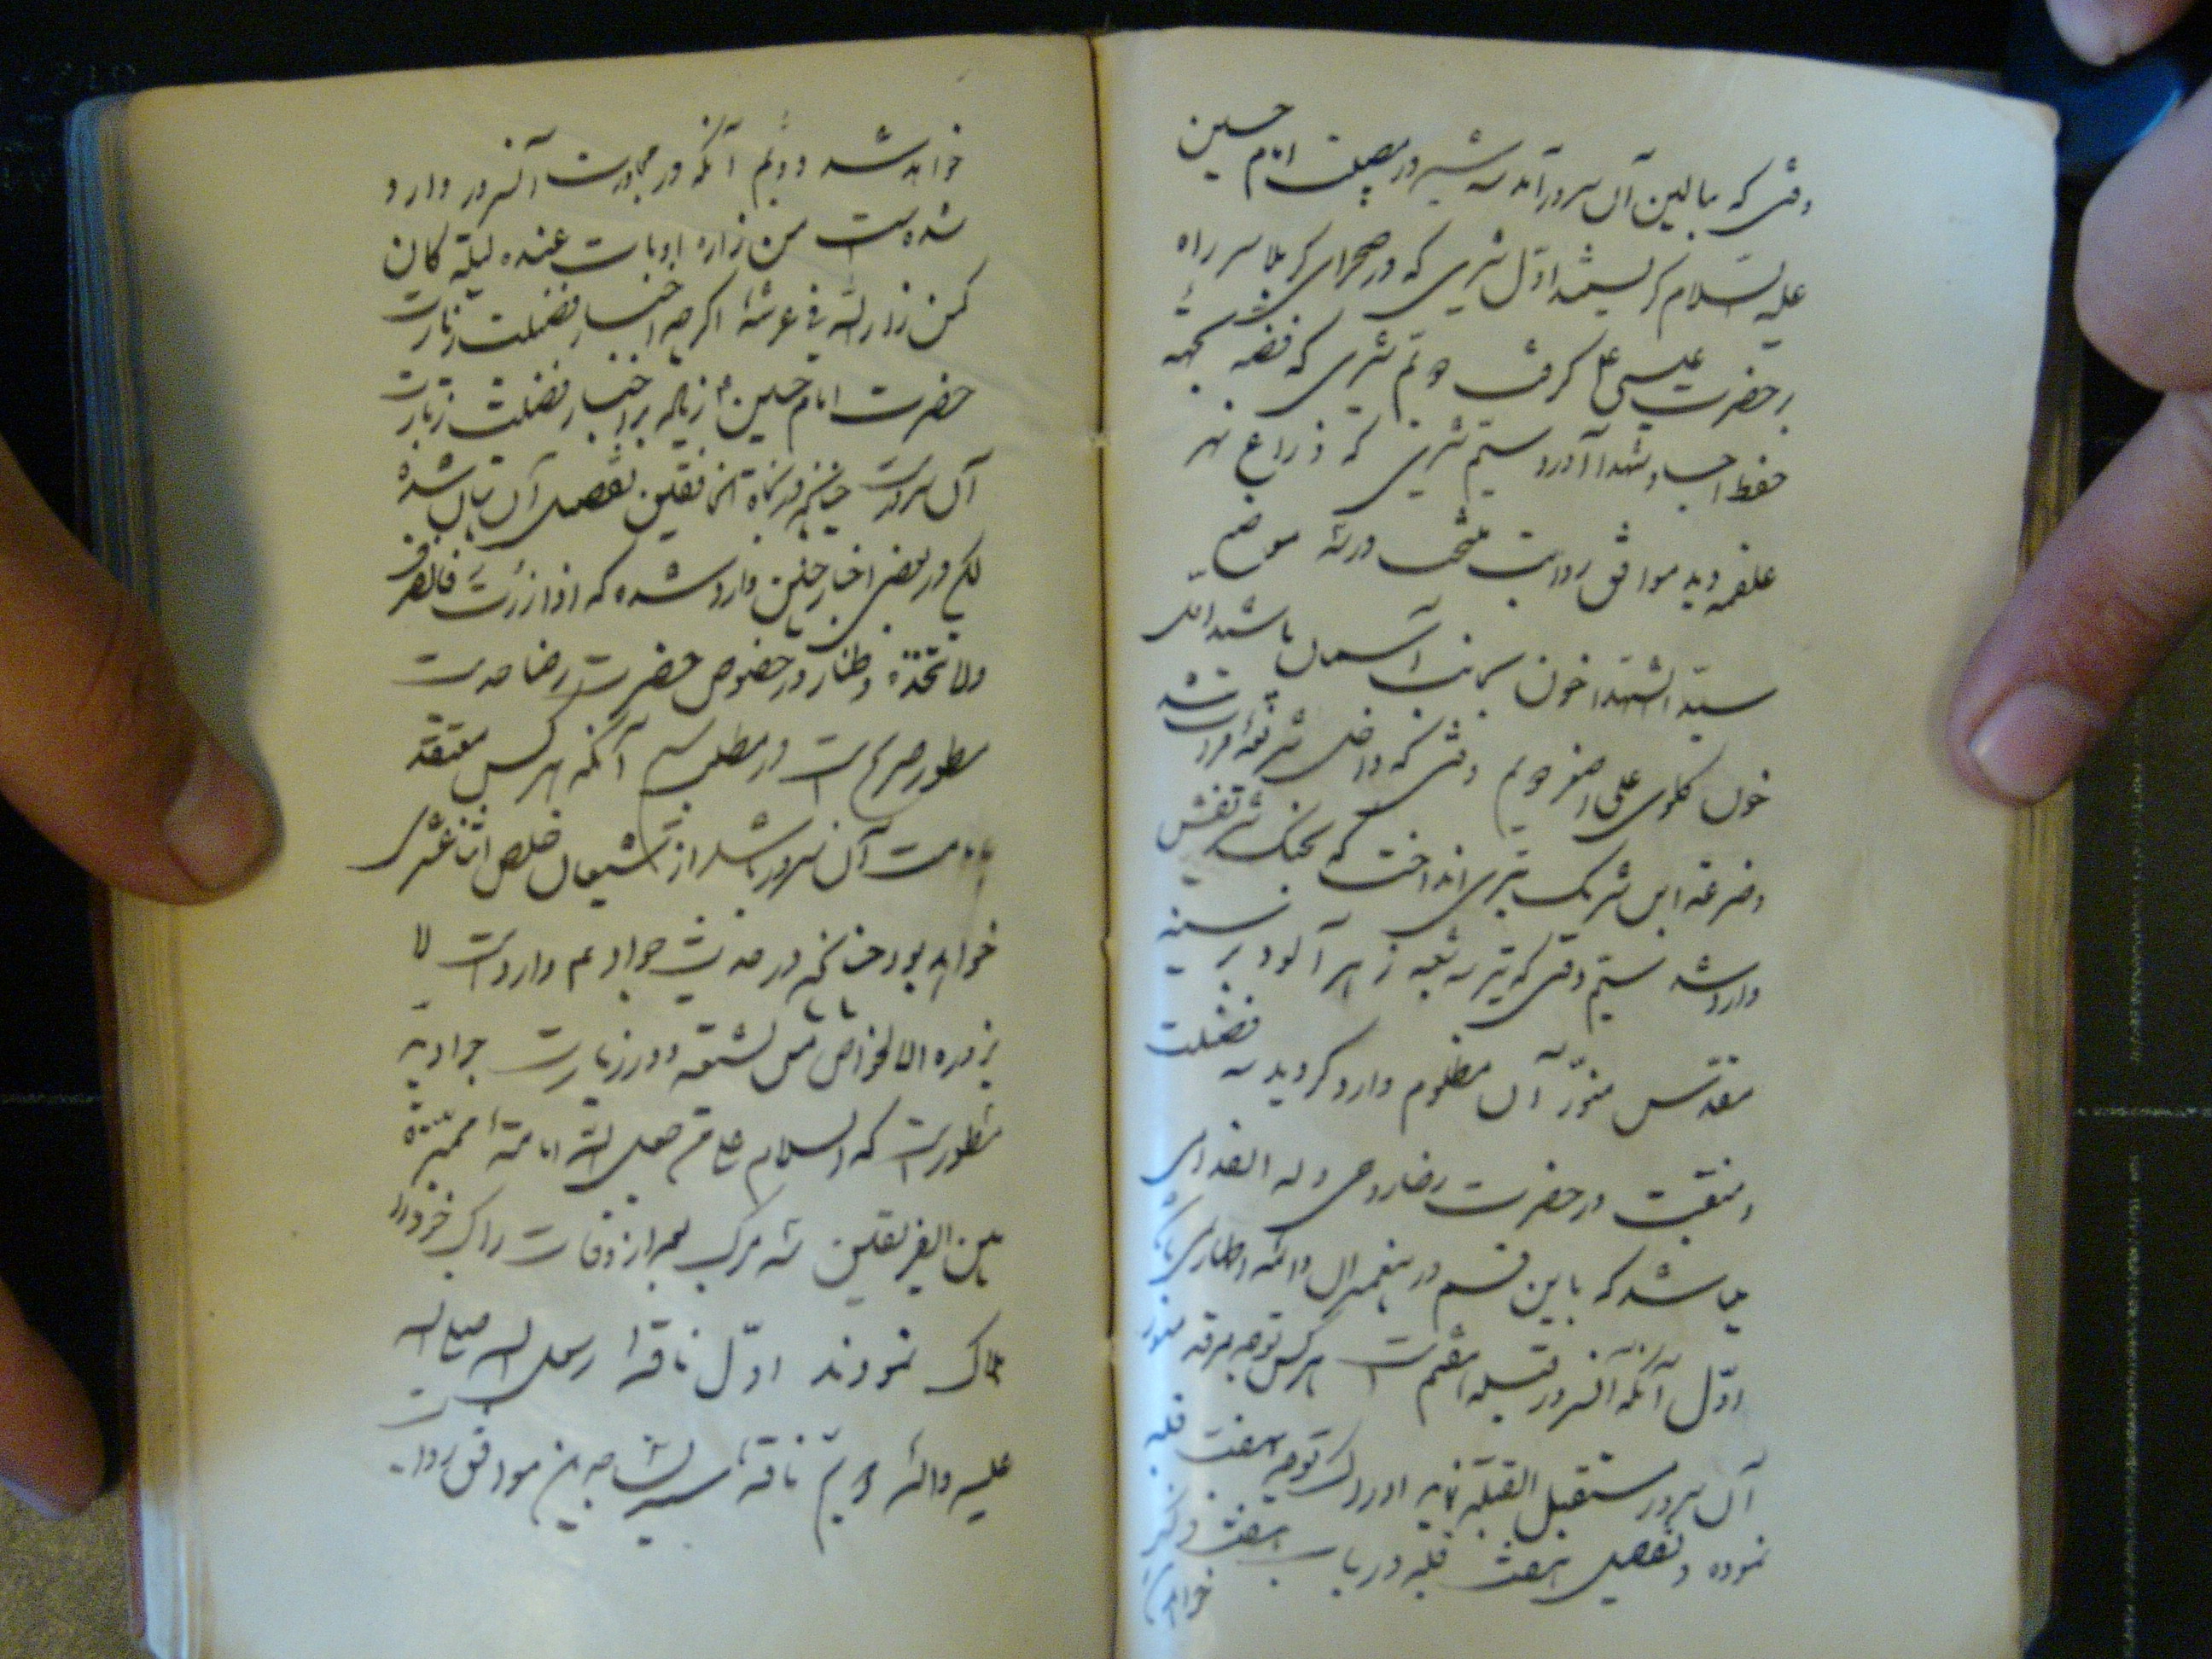 وقتی که ببالین آن سرور آمد سه شیر در مصیبت امام حسین
علیه السلام گریستند اول شیری که در صحرای کربلا سر راه
بر حضرت عیسی ع گرفت دویم شیری که فضه بجهة
حفظ اجساد شهدا آورد سیم شیری که زراع نهر
علقمه دید موافق روایت منتخب در سه موضع
سید الشهدا خون بجانب آسمان پاشید اول
خون گلوی علی اصغر دویم وقتی که داخل شریعه فرات شد
وضرعة ابن شریک تیری انداخت که بحنک شریفش
وارد شد سیم وقتی که تیر سه شعبه زهر آلود بر سینه
مقدس منور آن مظلوم وارد گردید سه فضیلت
و منقبت در حضرت رضا روحی له الفداء
میباشد که باین قسم در پیغمبران وائمه اطهار
اول آنکه آنسرور قبله هفتم است هرکس توجه بمرقد منور
آن سرور مستقبل القبله نماید اورا درک توجه هفت قبله
نموده و تفصیل هفت قبله در باب هفت ذکر
خواهد شد دویم آنکه در مجاورت آنسرور وارد
شده است من زاره او بات عنده لیلة کان
کمن زار الله فی عرشه اگرچه اخبار فضیلت زیارت
حضرت امام حسین ع زیاده بر اخبار فضیلت زیارت
آن سرور است چنانچه در نجاة الخافقین تفصیل آن بیان شده
لکن در بعضی اخبار چنین وارد شده که اذا زرت فانصرف
ولا تتخذه وطنا و در خصوص حضرت رضا حدیث
مسطور صریح است در مطلب سیم آنکه هر کس معتقد
امامت آن سرور باشد از شیعیان خلص اثنا عشری
خواهد بود چنانچه در حدیث جواد ع وارد است لا
یزوره الا الخواص من الشیعه و در زیارت جوادیه
مسطور است که السلام علی من جعل الله امامته ممیزة
بین الفریقین سه مرکب بعد از وفات راکب خود را
هلاک نمودند اول ناقه رسول الله صلی الله
علیه وآله دویم ناقه سید الساجدین موافق روایت